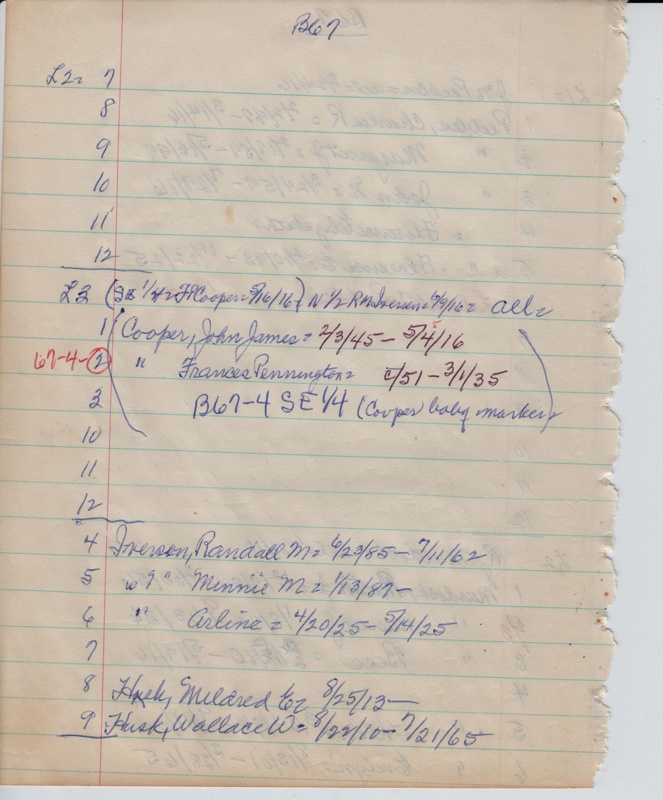 B67
L2= 7
8
9
10
11
12
L3 (SE 1/4= Cooper= 5/16/16) N 1/2 R M Iverson= 6/9/16= all=
1 Cooper, John James = 2/3/45 - 5/4/16
67-4-2 " Frances Pennington= c/51 - 3/1/35
3 B67-4 SE 1/4 (Cooper baby marker)
10
11
12
4 Iverson, Randall M= 6/23/85 - 7/11/62
5 w " Minnie M = 1/13/87-
6 " Arline = 4/20/25 - 5/14/25
7
8 Husk, Mildred = 8/25/13 -
9 Husk, Wallace W= 8/22/10 - 7/21/65